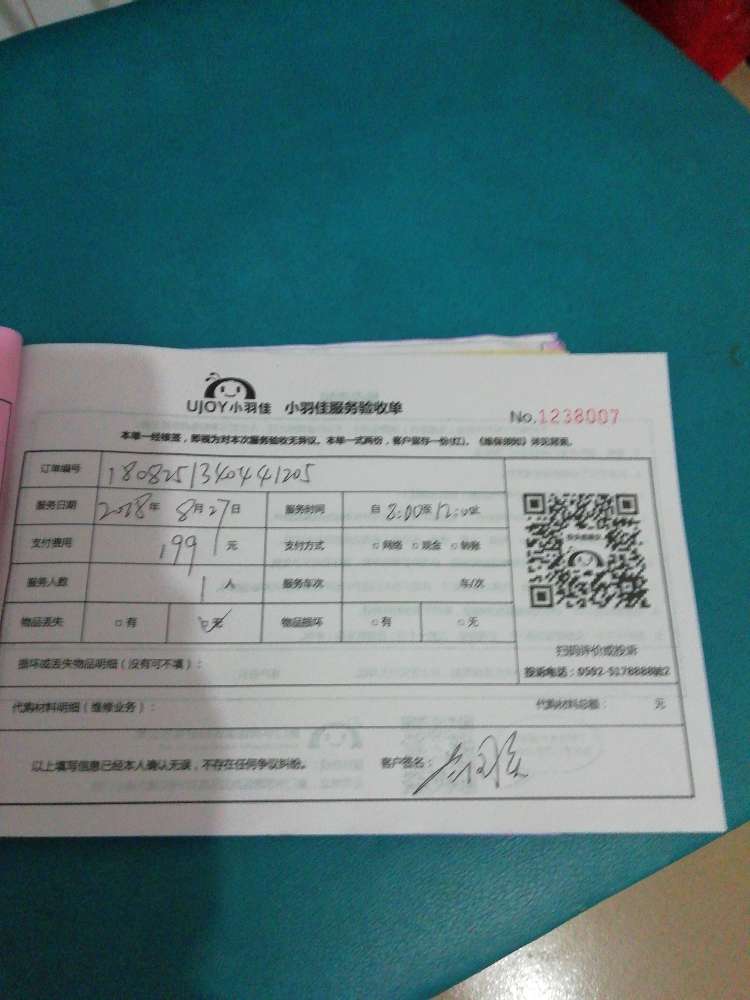 UJOY小羽佳 小羽佳服务验收单
No.1238007
本单一经核签，即视为对本次服务验收无异议。本单一式两份，客户留存一份(红)。《维保须知》详见背面。
订单编号 1808251340441205
服务日期 2018年 8月27日 服务时间 自 8:00至 12:00止
支付费用 199 元 支付方式 □网络 □现金 □转账
服务人数 1 人 服务车次 车/次
物品丢失 □有 □无 物品损坏 □有 □无
扫码评价或投诉
投诉电话：0592-5178888转2
损坏或丢失物品明细（没有可不填）：
代购材料明细（维修业务）： 代购材料总额： 元
以上填写信息已经本人确认无误，不存在任何争议纠纷。 客户签名：